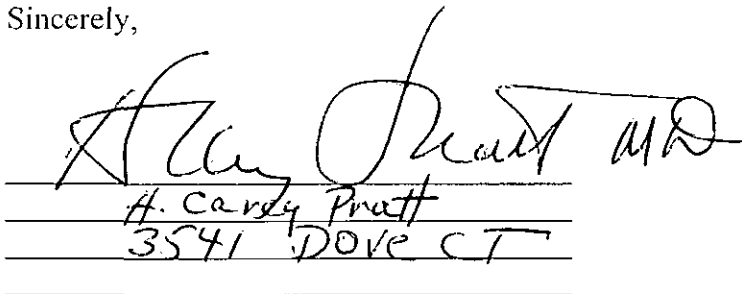 Sincerely,
H Carey Pratt MD
H. Carey Pratt
3541 DOVE CT